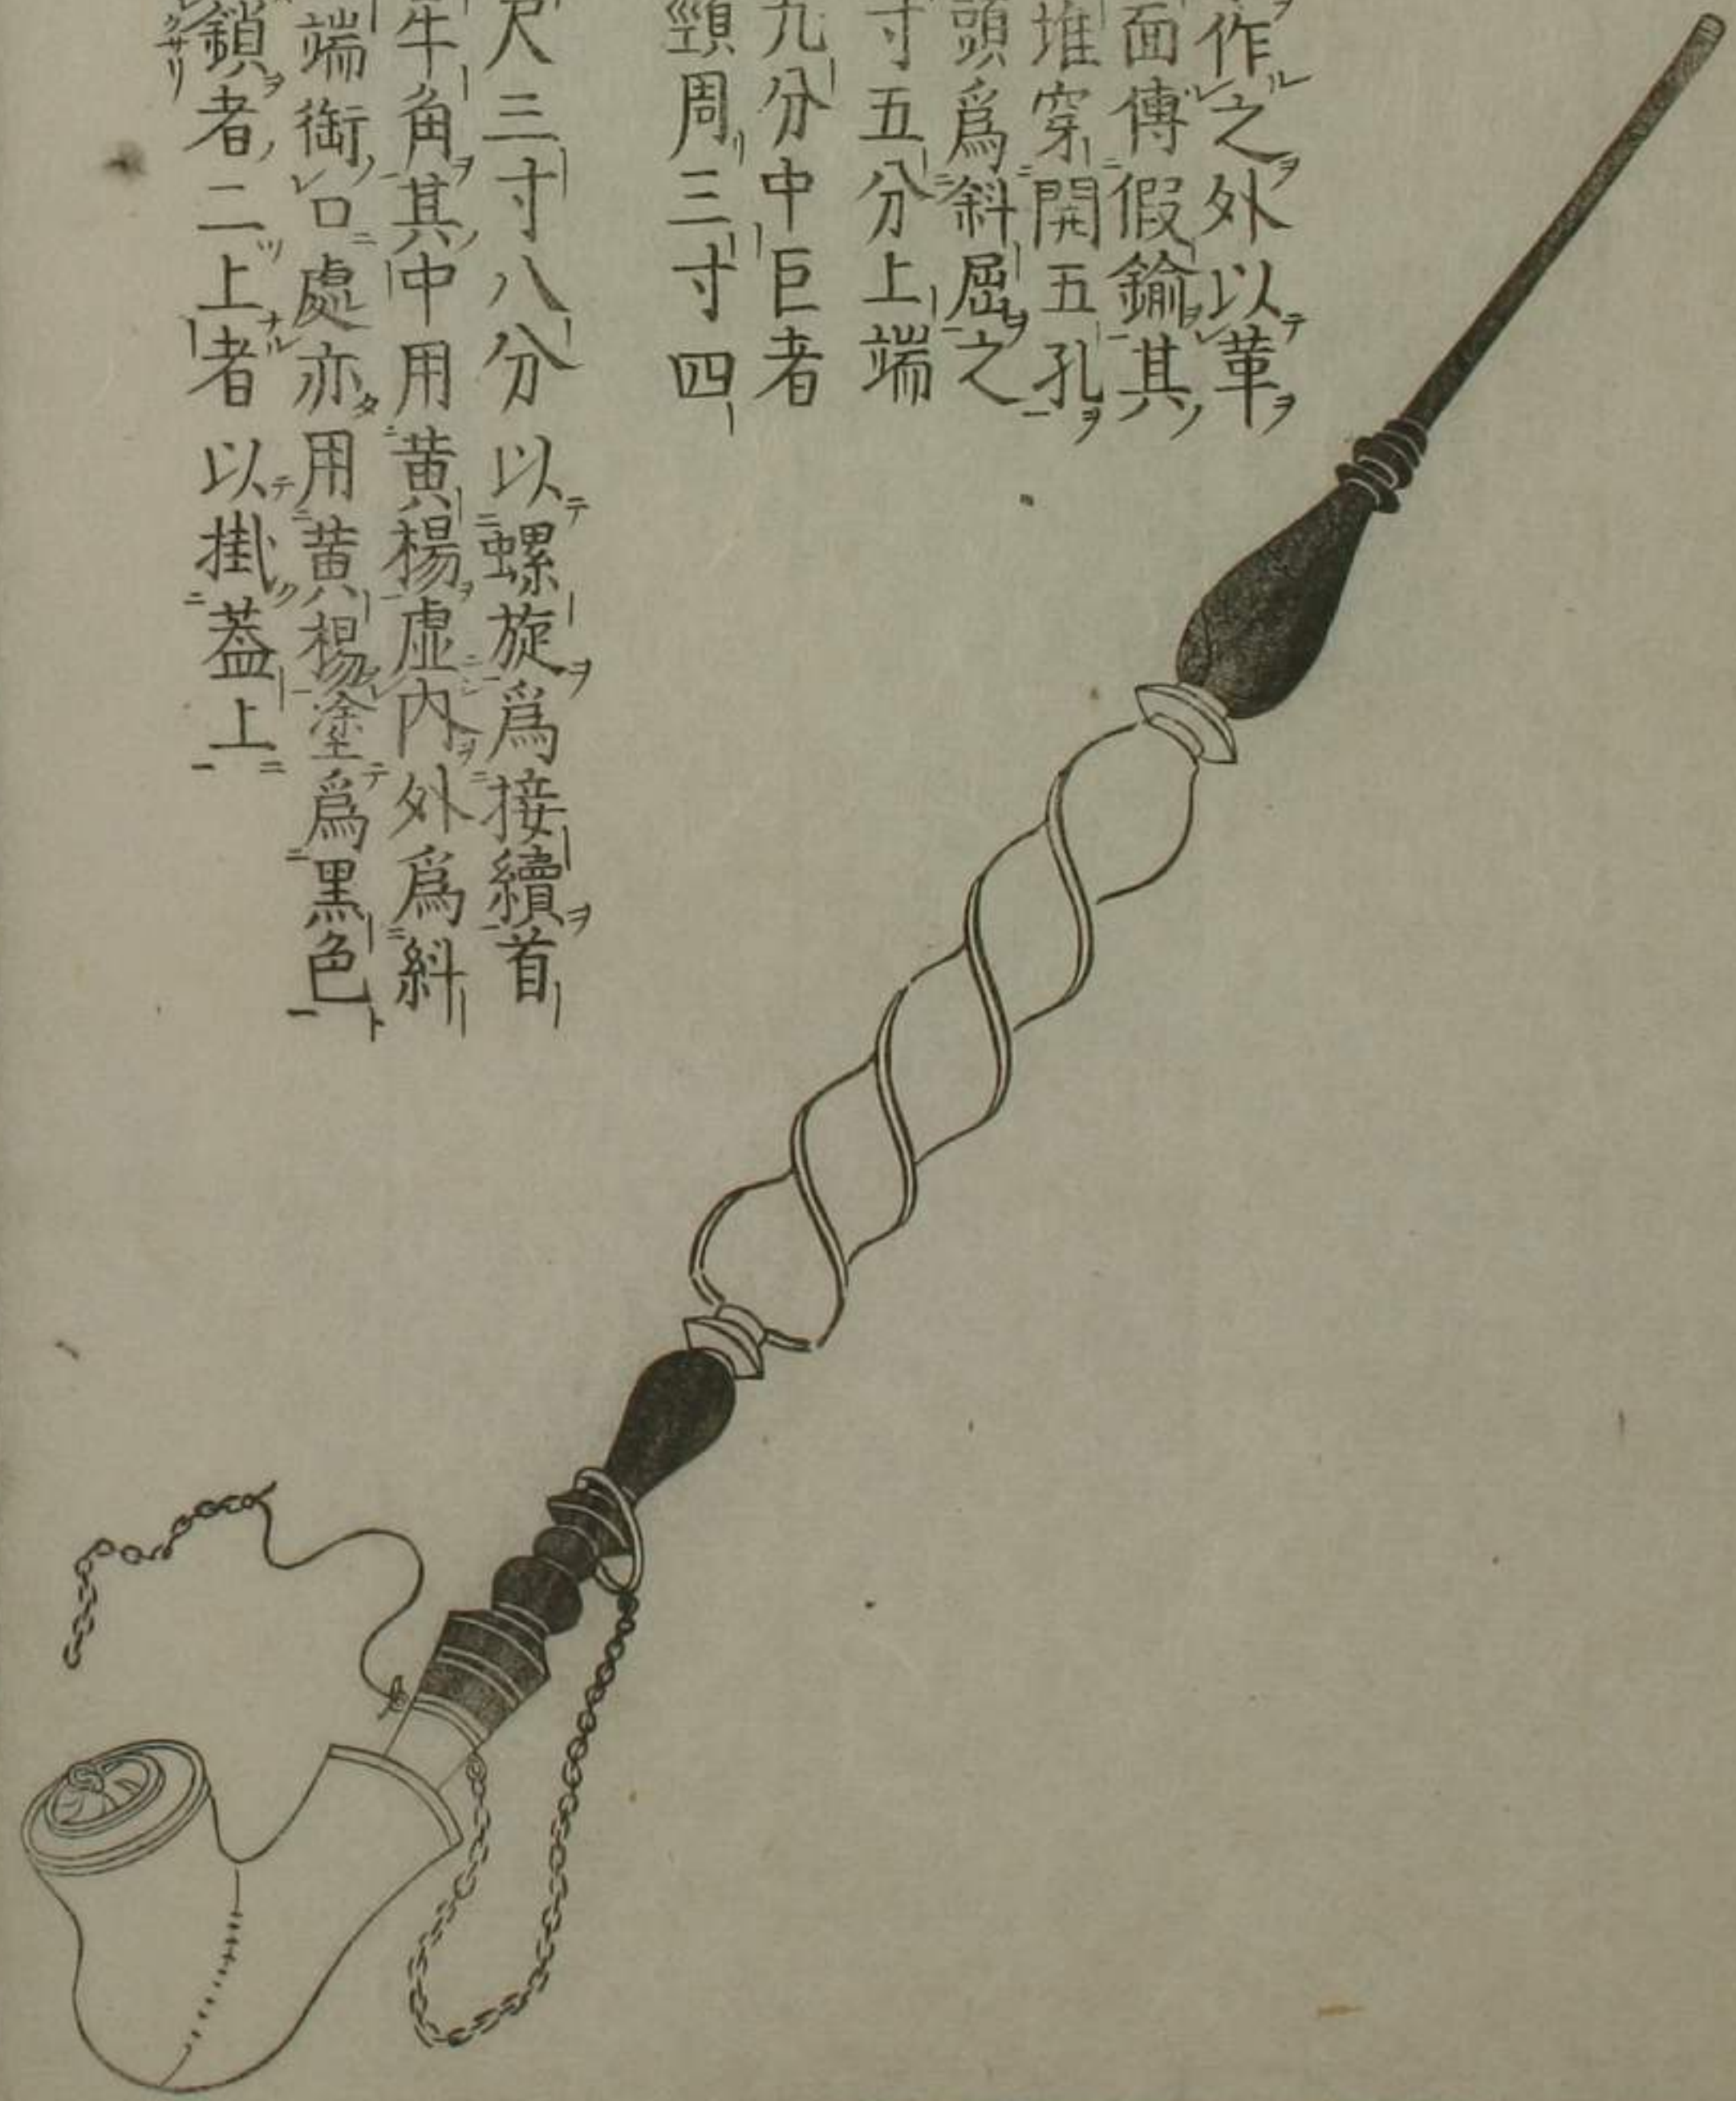 作之外以革
面傅假鍮其
堆穿開五孔
頭爲斜屈之
寸五分上端
九分中巨者
頸周三寸四
尺三寸八分以螺旋爲接續首
牛角其中用黄楊虚内外爲斜
端銜口處亦用黄楊塗爲黒色
鎖者二上者以掛蓋上